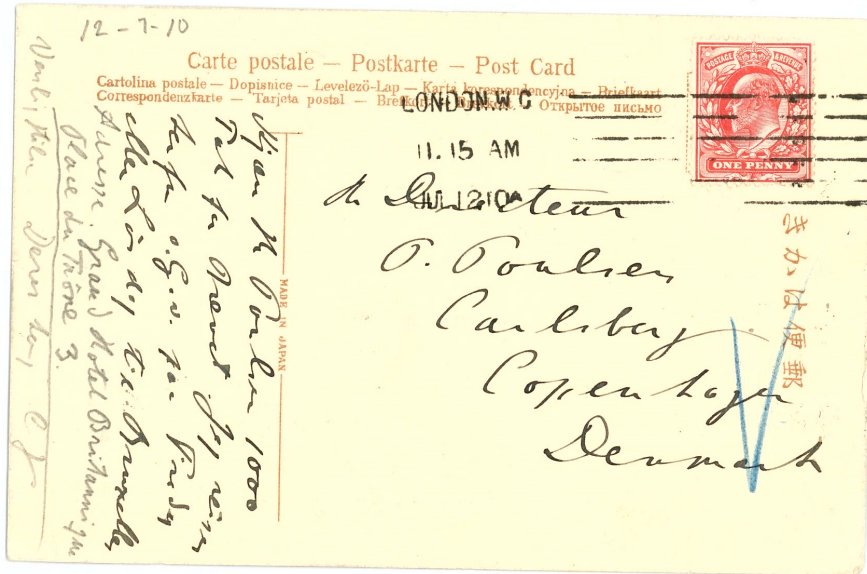 12-7-10
Carte postale — Postkarte — Post Card
Cartolina postale — Dopisnice — Levelező-Lap — Karta korespondencyjna — Briefkaart
Correspondenzkarte — Tarjeta postal — Открытое письмо
LONDON. W.C
11.15 AM
JUL 12 10
POSTAGE & REVENUE
ONE PENNY
Hr Directeur
P. Poulsen
Carlsberg
Copenhagen
Denmark
MADE IN JAPAN
きかは便郵
Kjære Hr Poulsen 1000
Tak for Brevet. Jeg reiser
herfra
eller Lørdag til Bruxelles
Adresse Grand Hotel Britannique
Place du Trône 3.
Venlig Hilsen Deres hengivne